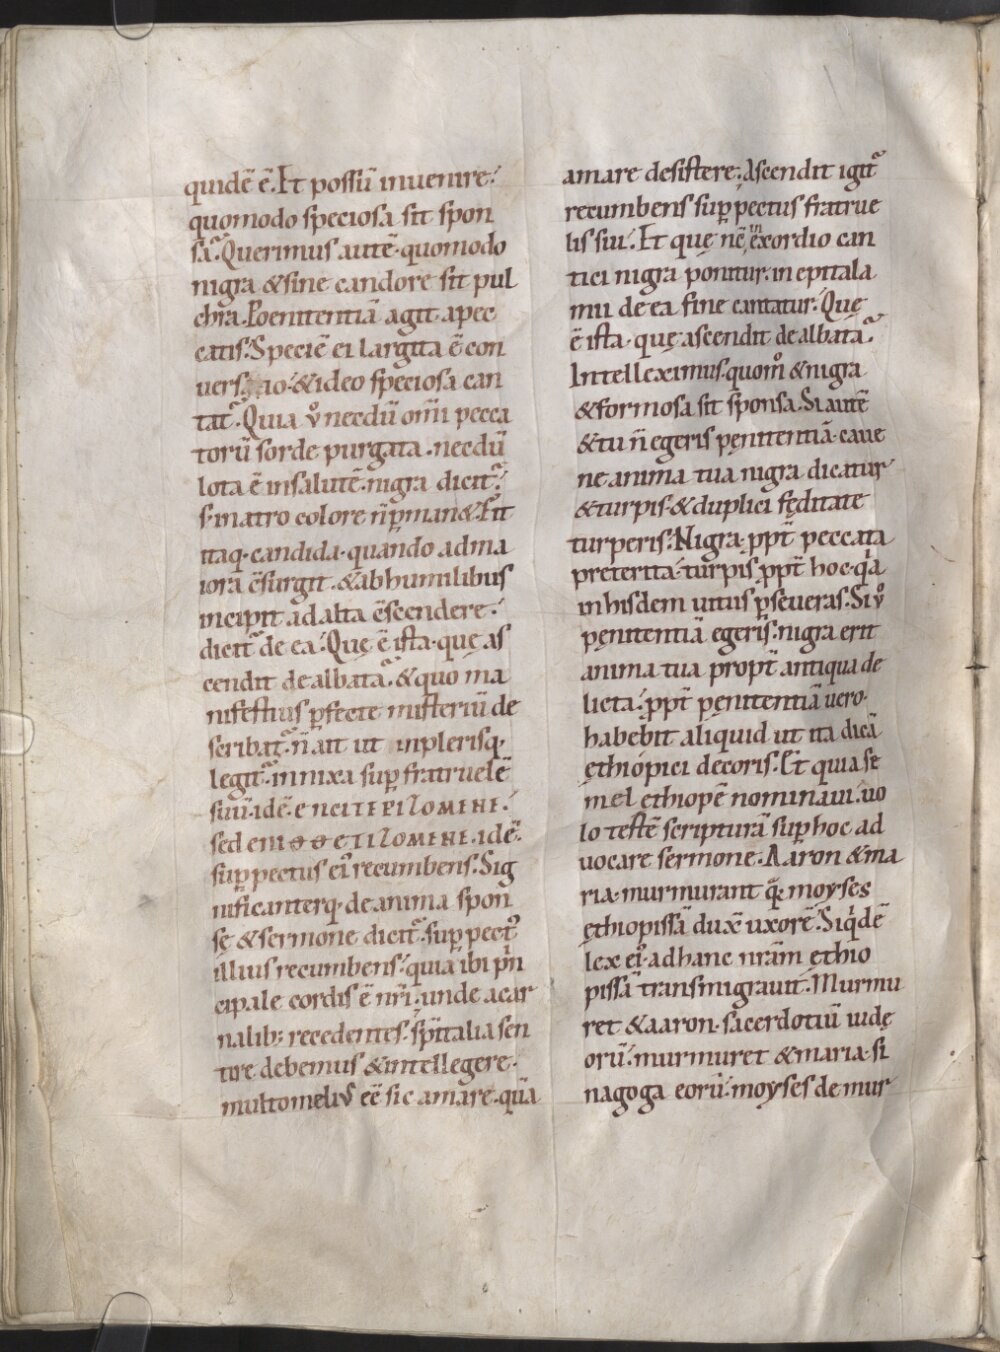 quidē ē. Et possū inuenire.
quomodo speciosa sit spon
sa. Querimus autē quomodo
nigra & sine candore sit pul
chra. Poenitentiā agit apec
catis. Speciē ei largita ē con
uersatio. & ideo speciosa can
tat᷑. Quia ỽo necdū omī pecca
torū sorde purgata. necdū
lota ē insalutē. nigra dicit᷑.
s; in atro colore n̄ ꝑman&. Fit
itaq; candida. quando adma
iora c̄surgit. & abhumilibus
incipit ad alta c̄scendere.
dicit᷑ de ea. Quę ē ista. quę as
cendit dealbata. & quo ma
nifestius ꝑfecte misteriū de
scribat᷑. n̄ ait ut inplerisq;
legit᷑. innixa suꝑ fratruelē
suū. idē.
sed idē.
suꝑ pectus eī recumbens. Sig
nificanterq; de anima spon
sę & sermone dicit᷑. suꝑ pect᷒
illius recumbens. quia ibi p̄n
cipale cordis ē nr̄i. unde acar
nalib; recedentes. sp̄italia sen
tire debemus & intellegere.
multo meli᷒ eē sic amare. quā
amare desistere. Ascendit igit᷑
recumbens suꝑ pectus fratrue
lis sui. Et quę nc̄ in exordio can
tici nigra ponitur. in epitala
mii de ea fine cantatur. Quę
ē ista. quę ascendit dealbata.
Intelleximus. quom̊ & nigra
& formosa sit sponsa. Si autē
& tu n̄ egeris pęnitentiā. caue
ne anima tua nigra dicatur
& turpis. & duplici fęditate
turperis. Nigra. ꝓpt̄ peccata
preterita. turpis ꝓpt̄ hoc. qͥa
inhisdem uitiis ꝑseueras. Si ỽo
pęnitentiā egeris. nigra erit
anima tua propt̄ antiqua de
licta. ꝓpt̄ pęnitentiā uero.
habebit aliquid ut ita dicā
ęthiopici decoris. Et quia se
mel ęthiopē nominaui. uo
lo testē scripturā suꝑ hoc ad
uocare sermone. Aaron & ma
ria. murmurant q̄. moyses
ęthiopissā dux̄ uxorē. Siqͥdē
lex ei᷒ adhanc nrām ęthio
pissā transmigrauit. Murmu
ret & aaron. sacerdotiū iudę
orū. murmuret & maria. si
nagoga eorū. moyses de mur